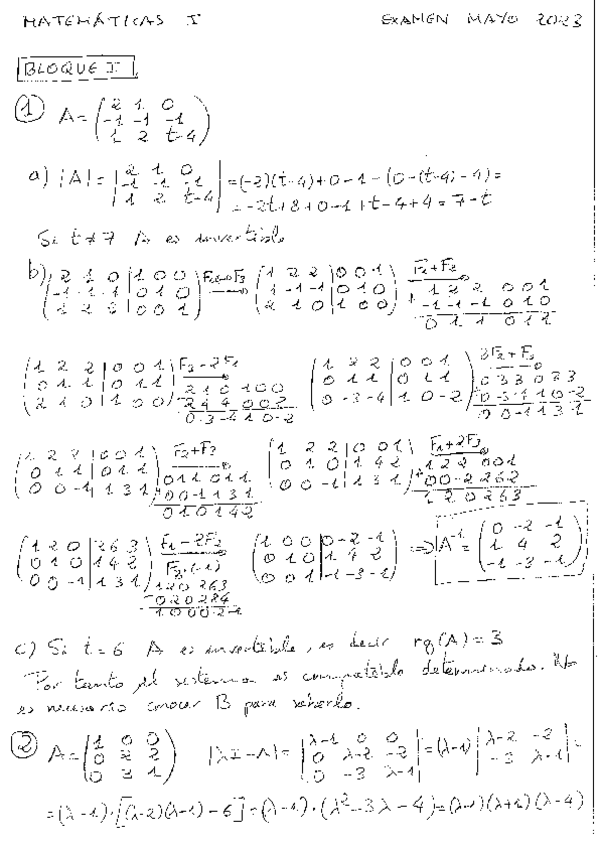 MATEMÁTICAS I EXAMEN MAYO 2023
BLOQUE I
① A = (2 1 0 / -1 -1 -1 / 1 2 t-4)
a) |A| = |2 1 0 / -1 -1 -1 / 1 2 t-4| = (-2)(t-4)+0-1-(0-(t-4)-4) =
= -2t+8+0-1+t-4+4 = 7-t
Si t≠7 A es invertible
b) (2 1 0 | 1 0 0 / -1 -1 -1 | 0 1 0 / 1 2 2 | 0 0 1) F1↔F3 → (1 2 2 | 0 0 1 / -1 -1 -1 | 0 1 0 / 2 1 0 | 1 0 0) F1+F2 → 1 2 2 0 0 1 + -1 -1 -1 0 1 0 / 0 1 1 0 1 1
(1 2 2 | 0 0 1 / 0 1 1 | 0 1 1 / 2 1 0 | 1 0 0) F3-2F1 → 2 1 0 1 0 0 / 2 4 4 0 0 2 / 0 -3 -4 1 0 -2 (1 2 2 | 0 0 1 / 0 1 1 | 0 1 1 / 0 -3 -4 | 1 0 -2) 3F2+F3 → 0 3 3 0 3 3 + 0 -3 -4 1 0 -2 / 0 0 -1 1 3 1
(1 2 2 | 0 0 1 / 0 1 1 | 0 1 1 / 0 0 -1 | 1 3 1) F2+F3 → 0 1 1 0 1 1 + 0 0 -1 1 3 1 / 0 1 0 1 4 2 (1 2 2 | 0 0 1 / 0 1 0 | 1 4 2 / 0 0 -1 | 1 3 1) F1+2F3 → 1 2 2 0 0 1 + 0 0 -2 2 6 2 / 1 2 0 2 6 3
(1 2 0 | 2 6 3 / 0 1 0 | 1 4 2 / 0 0 -1 | 1 3 1) F1-2F2 → F3·(-1) 1 2 0 2 6 3 / 0 2 0 2 8 4 / 1 0 0 0 -2 -1 (1 0 0 | 0 -2 -1 / 0 1 0 | 1 4 2 / 0 0 1 | -1 -3 -1) ⇒ A⁻¹ = (0 -2 -1 / 1 4 2 / -1 -3 -1)
c) Si t=6 A es invertible, es decir rg(A)=3
Por tanto el sistema es compatible determinado. No
es necesario conocer B para saberlo.
② A = (1 0 0 / 0 2 2 / 0 3 1) |λI-A| = |λ-1 0 0 / 0 λ-2 -2 / 0 -3 λ-1| = (λ-1) |λ-2 -2 / -3 λ-1| =
= (λ-1)·[(λ-2)(λ-1)-6] = (λ-1)·(λ²-3λ-4) = (λ-1)(λ+1)(λ-4)